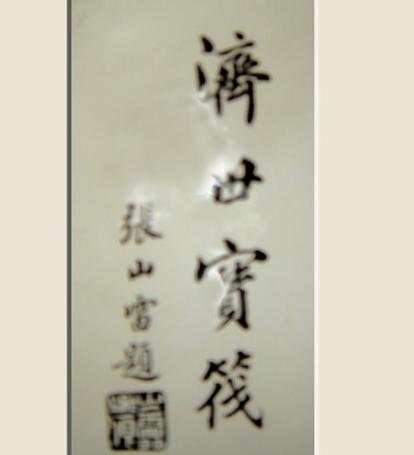 濟世寶筏
張山雷題